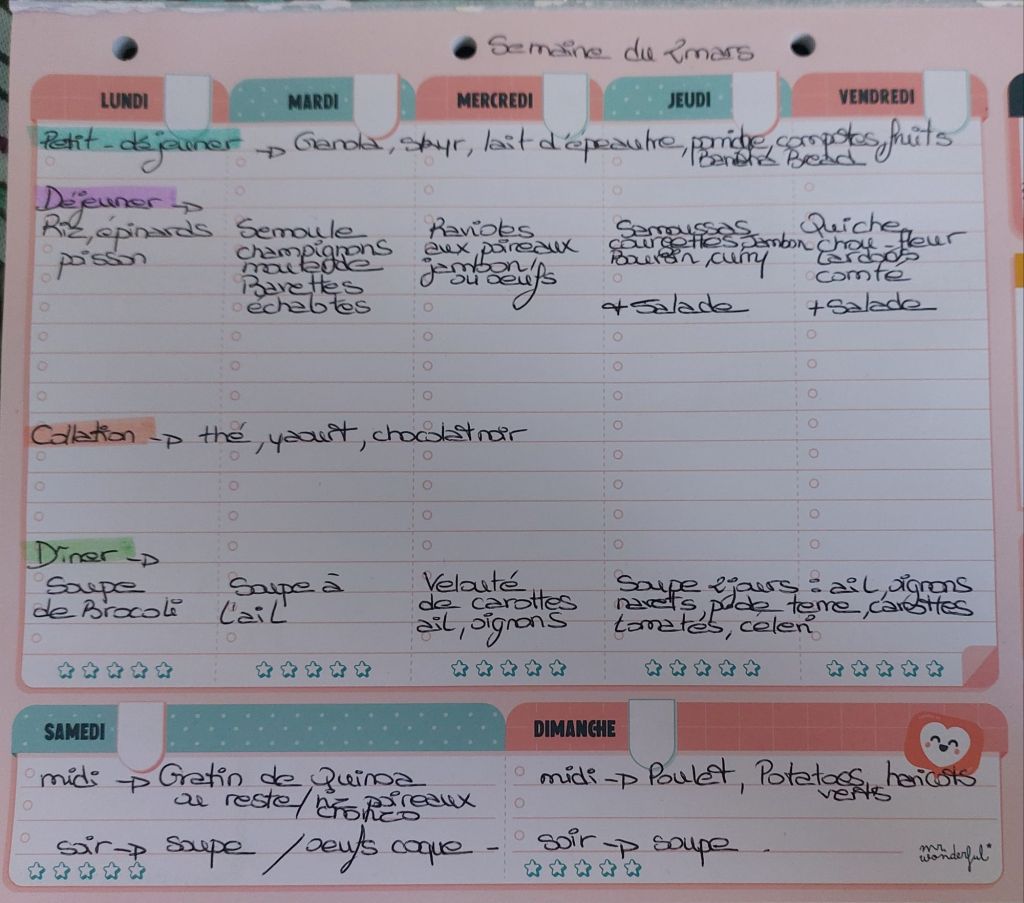 Semaine du 2 mars
LUNDI MARDI MERCREDI JEUDI VENDREDI
Petit-déjeuner → Granola, skyr, lait d'épeautre, porridge, compotes, fruits
Banana Bread
Déjeuner →
Riz, épinards
poisson
Semoule
champignons
moutarde
Pavettes
échalotes
Ravioles
aux poireaux
jambon/
ou oeufs
Samoussas
courgettes jambon
Boursin, curry
+ Salade
Quiche
chou-fleur
Lardons
comté
+ Salade
Collation → thé, yaourt, chocolat noir
Dîner →
Soupe
de Brocoli
Soupe à
l'ail
Velouté
de carottes
ail, oignons
Soupe 2 jours : ail, oignons
navets, p. de terre, carottes
tomates, céleri
SAMEDI
midi → Gratin de Quinoa
ou reste / poireaux
soir → soupe / oeufs coque -
DIMANCHE
midi → Poulet, Potatoes, haricots
verts
soir → soupe .
mr.
wonderful*